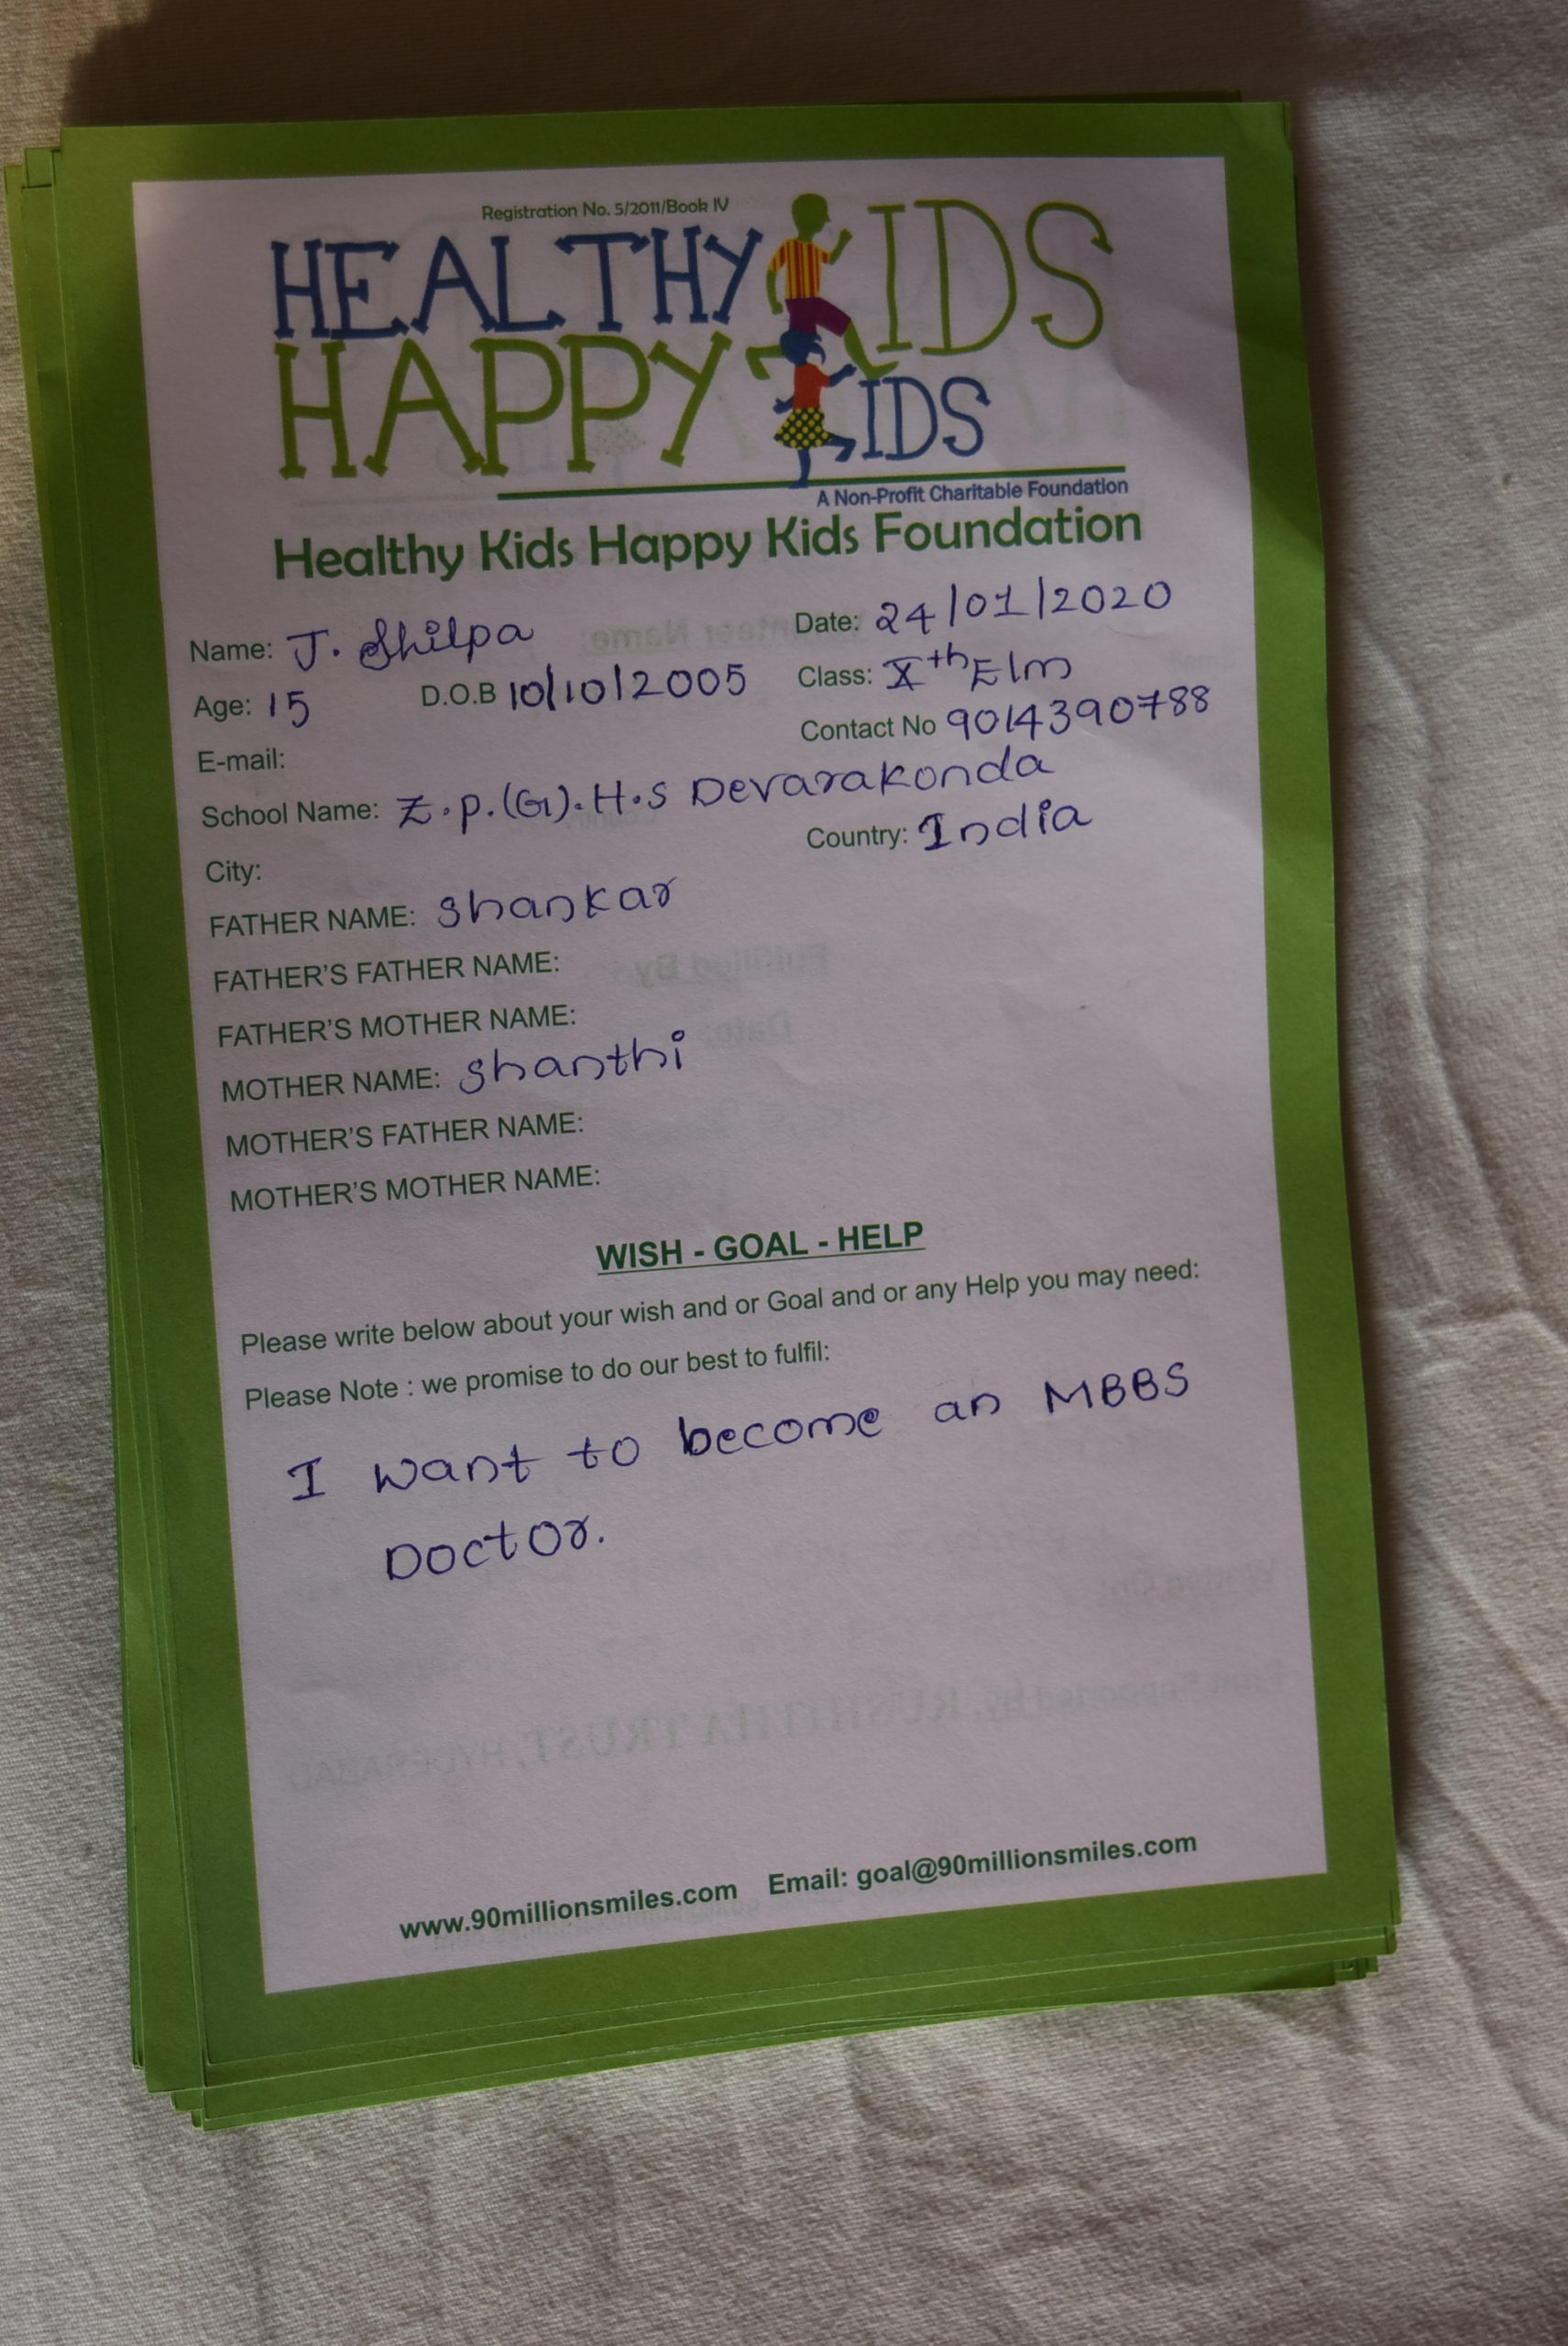 Registration No. 5/2011/Book IV
HEALTHY KIDS
HAPPY KIDS
A Non-Profit Charitable Foundation
Healthy Kids Happy Kids Foundation
Name: J. Shilpa Date: 24/01/2020
Age: 15 D.O.B 10/10/2005 Class: Xth E/m
E-mail: Contact No 9014390788
School Name: Z.P.(G).H.S Devarakonda
City: Country: India
FATHER NAME: Shankar
FATHER'S FATHER NAME:
FATHER'S MOTHER NAME:
MOTHER NAME: Shanthi
MOTHER'S FATHER NAME:
MOTHER'S MOTHER NAME:
WISH - GOAL - HELP
Please write below about your wish and or Goal and or any Help you may need:
Please Note : we promise to do our best to fulfil:
I want to become an MBBS
Doctor.
www.90millionsmiles.com Email: goal@90millionsmiles.com